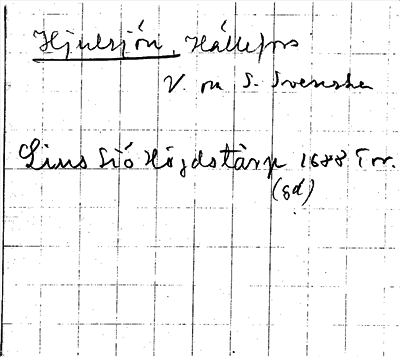 Hjulsjön, Hällefors
V. om S. Svenska
Lins Siö Höjdstårp 1688 Tor.
(sd)